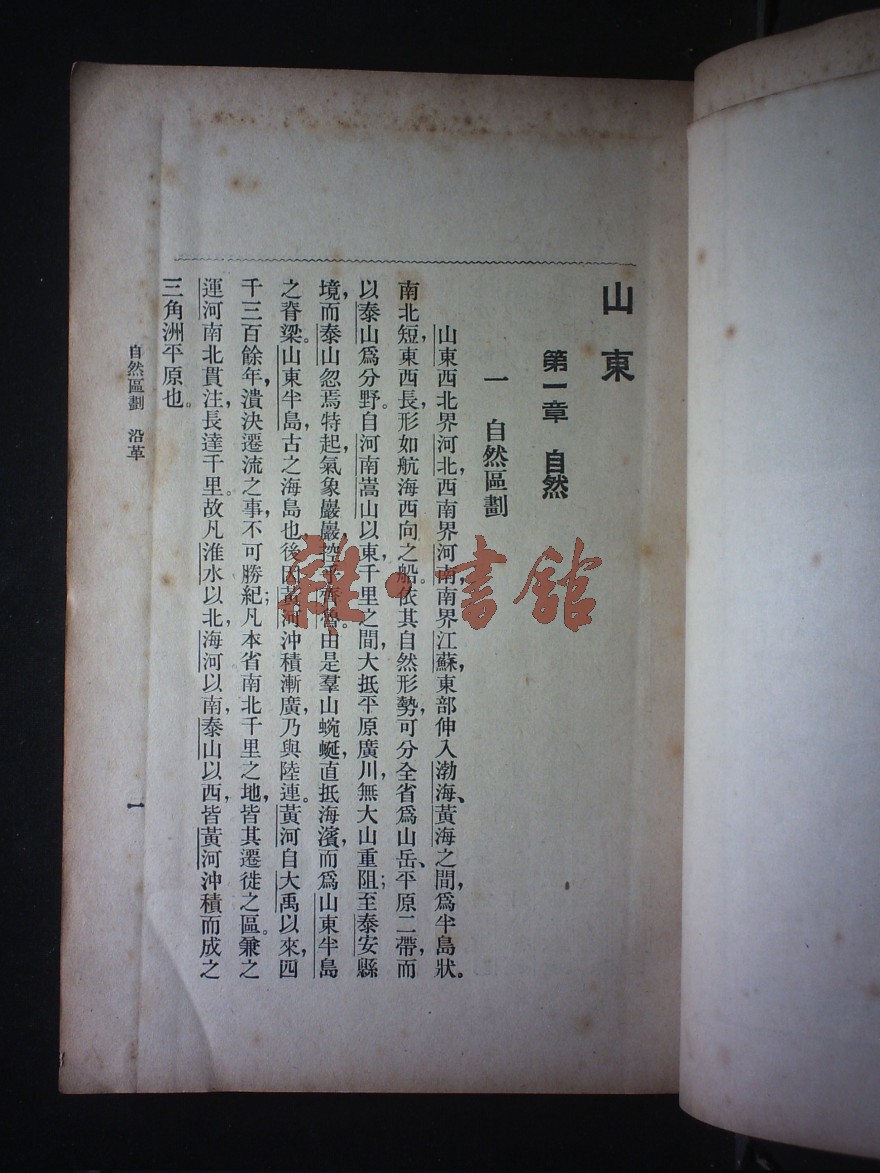 山東
第一章 自然
一 自然區劃
山東西北界河北，西南界河南，南界江蘇，東部伸入渤海、黃海之間，爲半島狀。
南北短，東西長，形如航海西向之船。依其自然形勢，可分全省爲山岳、平原二帶，而
以泰山爲分野。自河南嵩山以東，千里之間，大抵平原廣川，無大山重阻；至泰安縣
境，而泰山忽焉特起，氣象巖巖，控乎齊魯。由是羣山蜿蜒，直抵海濱，而爲山東半島
之脊梁。山東半島，古之海島也，後因黃河沖積漸廣，乃與陸連。黃河自大禹以來，四
千三百餘年，潰決遷流之事，不可勝紀；凡本省南北千里之地，皆其遷徙之區。兼之
運河南北貫注，長達千里。故凡淮水以北，海河以南，泰山以西，皆黃河沖積而成之
三角洲平原也。
自然區劃 沿革
一
雜·書館